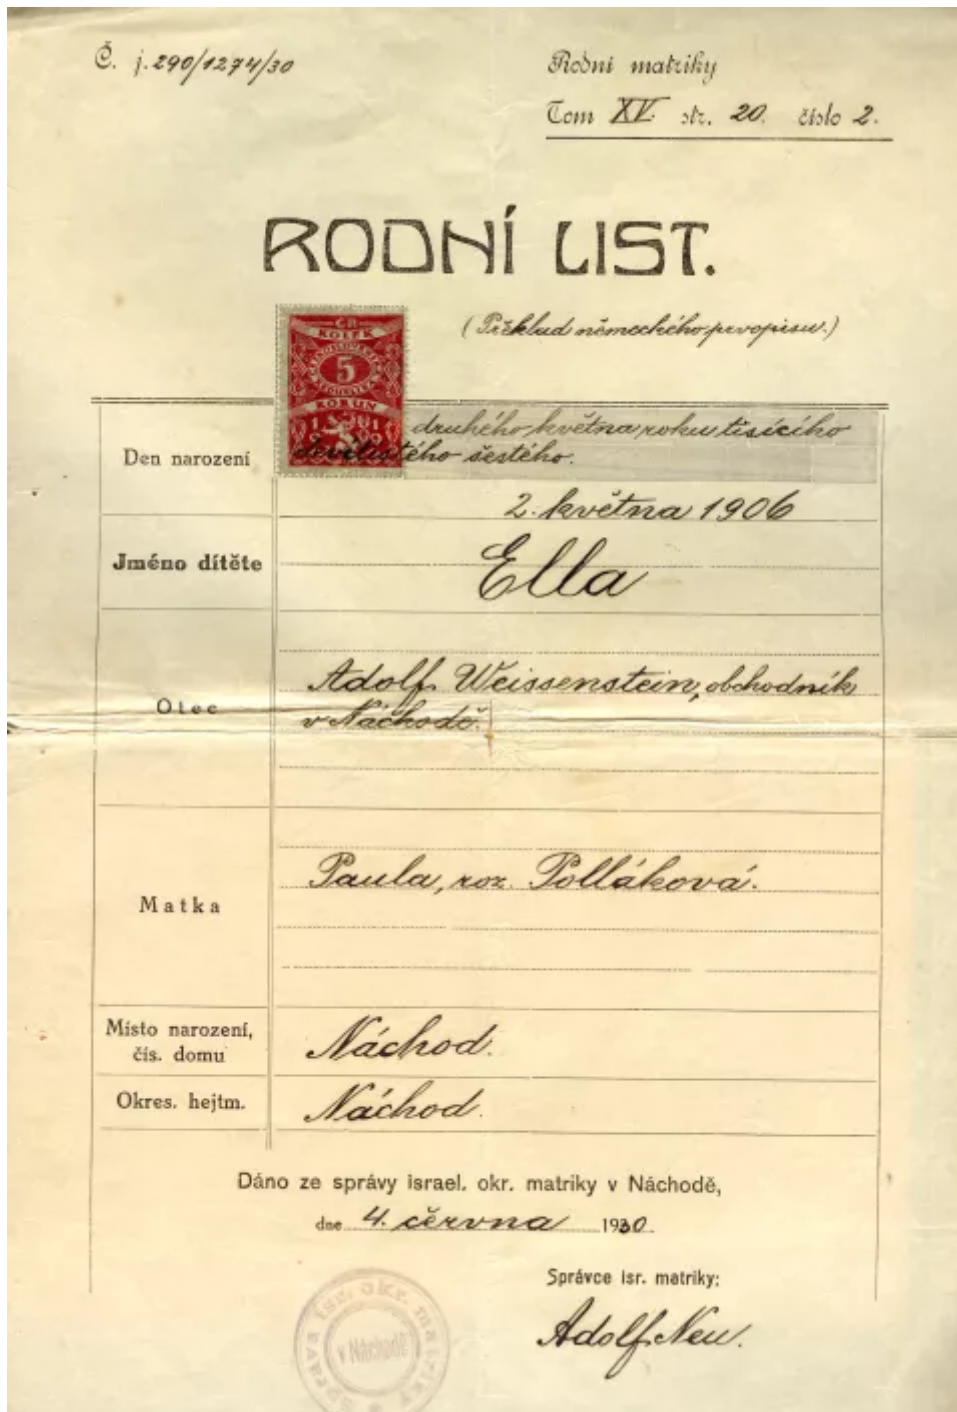 Č. j. 290/1274/30
Rodní matriky
Tom XV. str. 20. číslo 2.
RODNÍ LIST.
(Překlad německého prvopisu.)
ČR
KOLEK
5
KORUN
1 1
Den narození
druhého května roku tisícího
devítistého šestého.
2. května 1906
Jméno dítěte
Ella
Otec
Adolf Weissenstein, obchodník
v Náchodě.
Matka
Paula, roz. Polláková.
Místo narození,
čís. domu
Náchod.
Okres. hejtm.
Náchod.
Dáno ze správy israel. okr. matriky v Náchodě,
dne 4. června 1930.
Správce isr. matriky:
Adolf Neu.
Správa isr. okr. matriky
v Náchodě